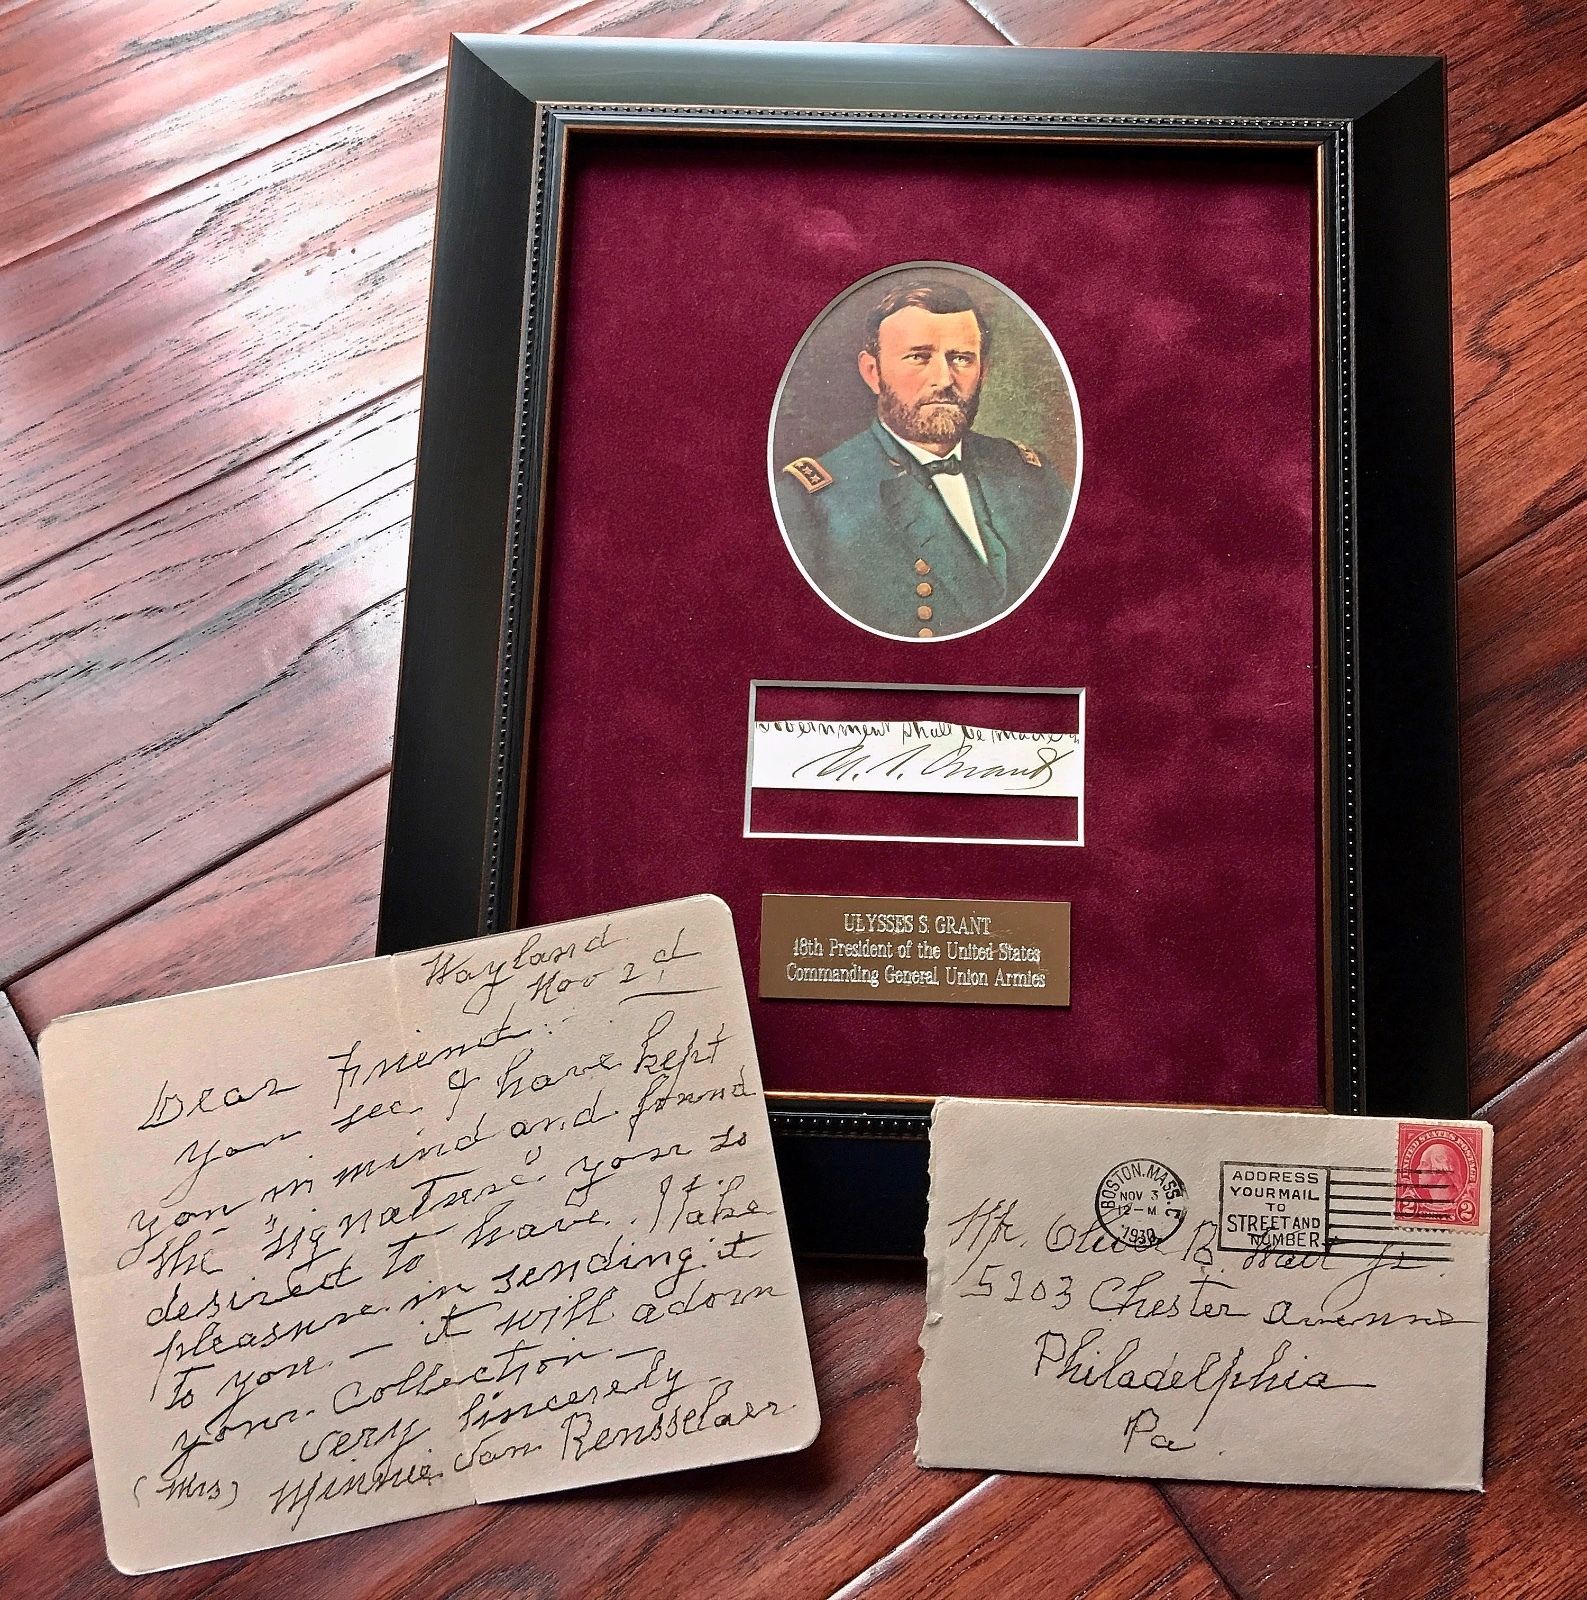 Government shall be made
U. S. Grant
ULYSSES S. GRANT
18th President of the United States
Commanding General, Union Armies
Wayland
Nov 2d
Dear Friend:
You see I have kept
you in mind and found
the "signature" you so
desired to have. I take
pleasure in sending it
to you — it will adorn
your collection —
very sincerely —
(Mrs) Minnie Van Rensselaer.
BOSTON, MASS. C
NOV 3
12-M
1930
ADDRESS
YOUR MAIL
TO
STREET AND
NUMBER
UNITED STATES POSTAGE
2 CENTS 2
Mr. Oliver R. Jr.
5203 Chester Avenue
Philadelphia
Pa.